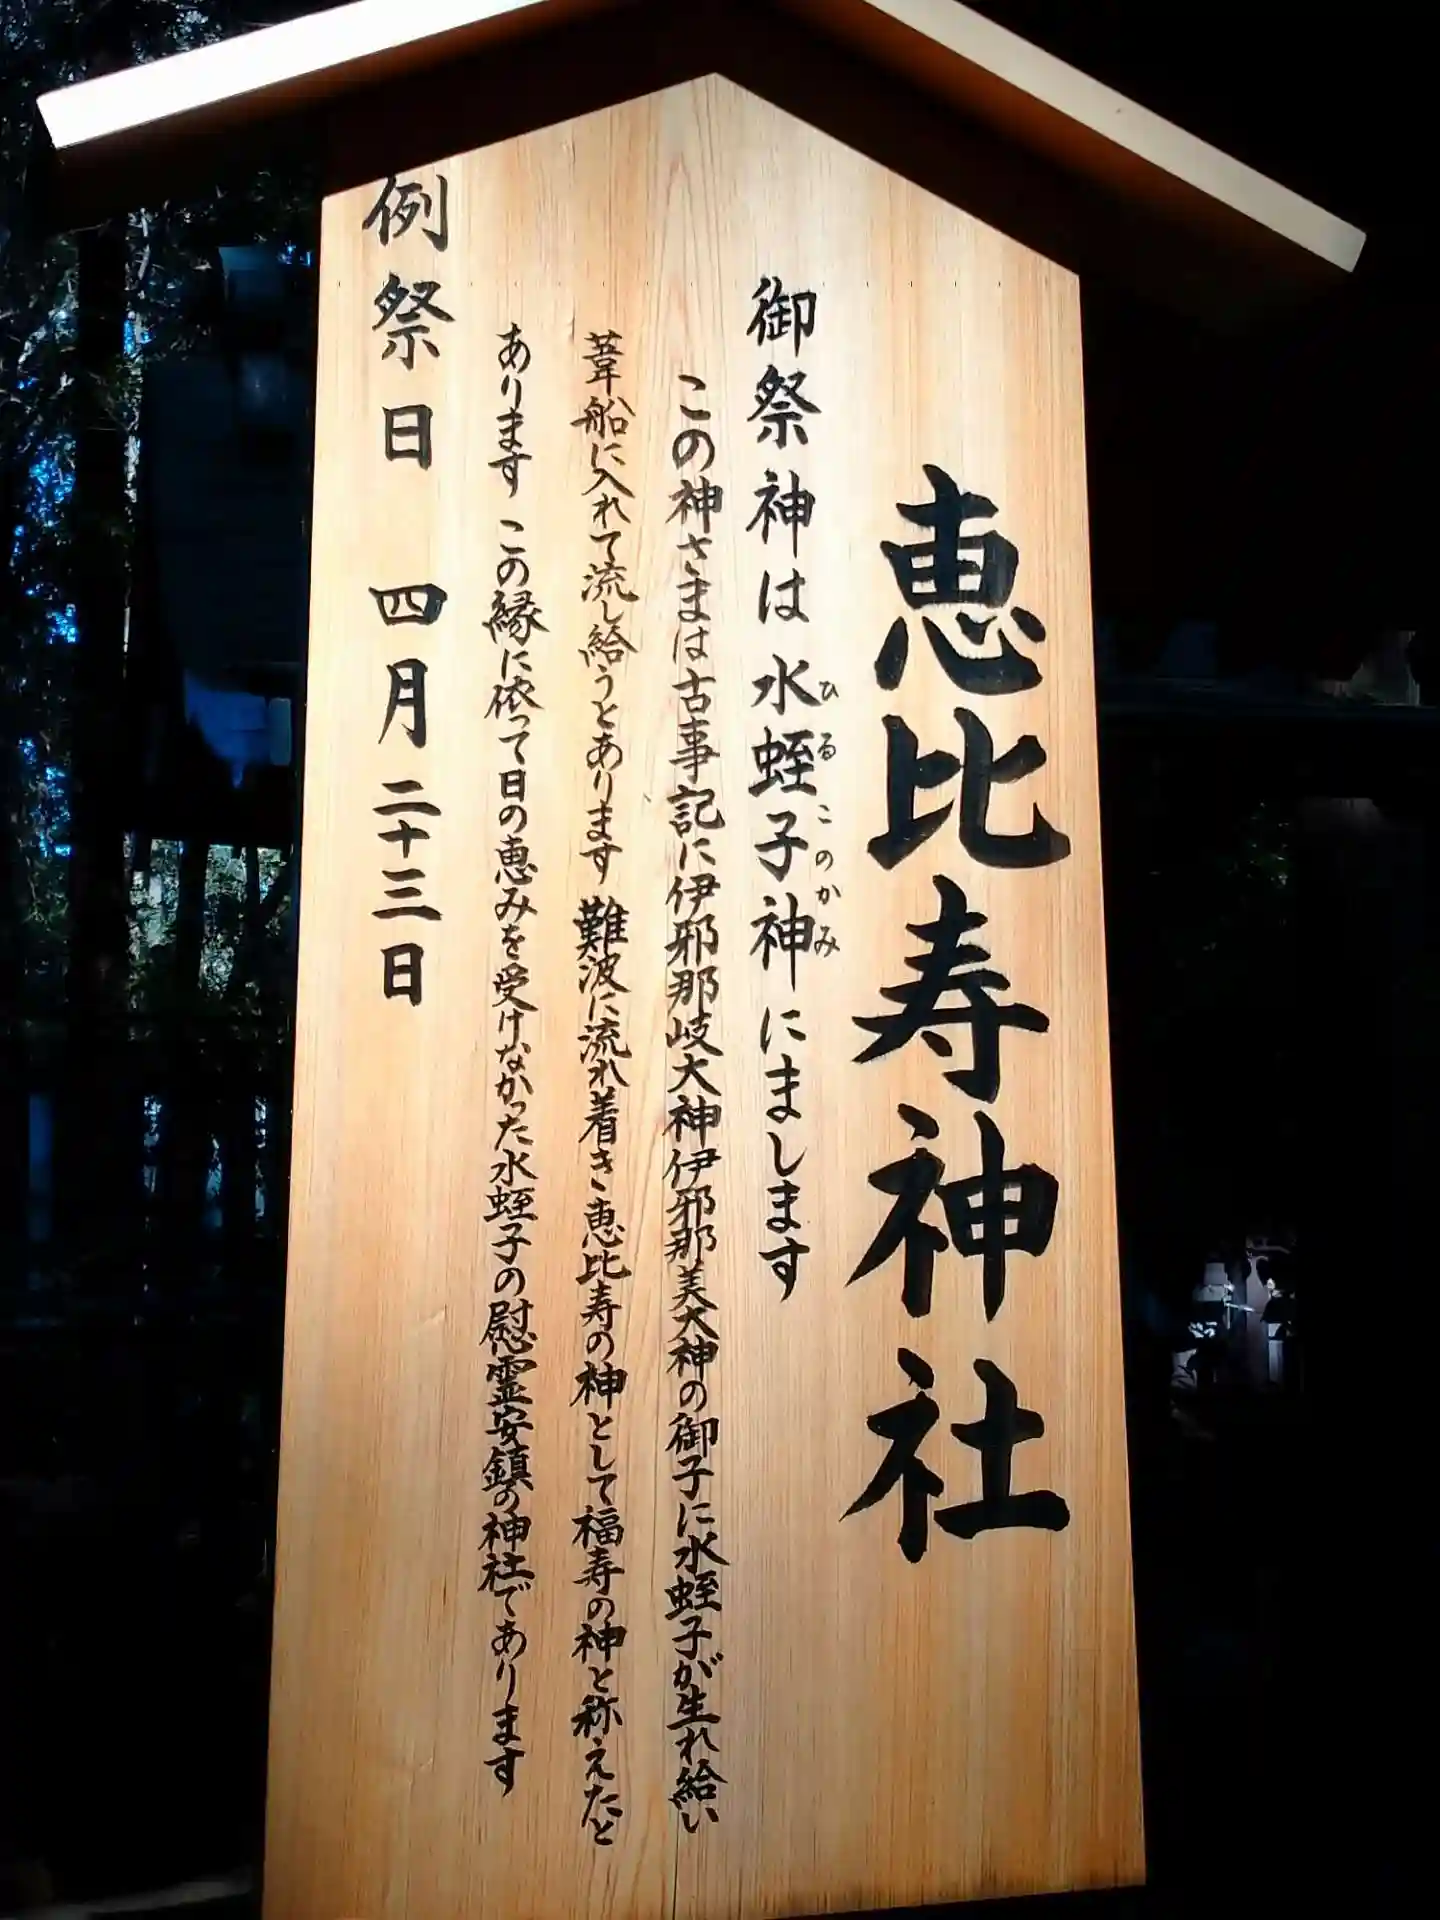 恵比寿神社
御祭神は水蛭子神にまします
ひるこのかみ
この神さまは古事記に伊邪那岐大神伊邪那美大神の御子に水蛭子が生れ給い
葦船に入れて流し給うとあります 難波に流れ着き、恵比寿の神として福寿の神と称えたと
あります この縁に依って日の恵みを受けなかった水蛭子の慰霊安鎮の神社であります
例祭日 四月二十三日